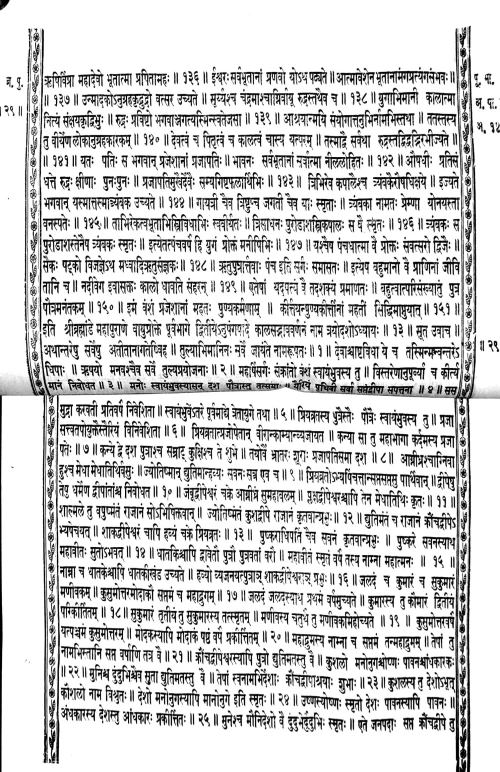 ब्र. पु.
२९ ॥
ऋषिर्विप्रा महादेवो भूतात्मा प्रपितामहः ॥ १३६ ॥ ईश्वरः सर्वभूतानां प्रणवो योऽथ पठ्यते ॥ आत्मावेशेन भूतानामंगप्रत्यंगसंभवः ॥
॥ १३७ ॥ उन्मादको वत्सर उच्यते ॥ सूर्य्यश्च चंद्रमाश्चाग्निर्वायू रुद्रस्तथैव च ॥ १३८ ॥ युगाभिमानी कालात्मा
नित्यं संक्षयकृद्विभुः ॥ रुद्रः प्रविष्टो भगवाञ्जगत्यस्मिन्स्वतेजसा ॥ १३९ ॥ ततस्तस्य
तु वीर्येण लोकानुग्रहकारकम् ॥ १४० ॥ देवत्वं च पितृत्वं च कालत्वं चास्य यत्परम् ॥ तस्माद्वै सर्वथा रुद्रस्तद्विद्वद्भिरभीज्यते ॥
॥ १४१ ॥ यतः पतिः स भगवान् प्रजेशानां प्रजापतिः ॥ भावनः सर्वभूतानां सर्वात्मा नीललोहितः ॥ १४२ ॥ ओषधीः प्रतिसं
धत्ते रुद्रः क्षीणाः पुनःपुनः ॥ १४३ ॥ त्रिभिरेव कपालैश्च त्र्यंबकैरोषधिक्षये ॥ इज्यते
भगवान् यस्मात्तस्मात्त्र्यंबक उच्यते ॥ १४४ ॥ गायत्री चैव त्रिष्टुप् च जगती चैव याः स्मृताः ॥ त्र्यंबका नामतः प्रेम्णा योनयस्ता
वनस्पतेः ॥ १४५ ॥ ताभिरेकत्वभूताभिस्त्रिविधाभिः स्ववीर्यतः ॥ त्रिसाधनः पुरोडाशस्त्रिकपालः स वै स्मृतः ॥ १४६ ॥ त्र्यंबकः स
पुरोडाशस्तेनैष त्र्यंबकः स्मृतः ॥ इत्येतत्पंचवर्षं हि युगं प्रोक्तं मनीषिभिः ॥ १४७ ॥ यश्चैष पंचधात्मा वै प्रोक्तः संवत्सरो द्विजैः ॥
॥ १४८ ॥ ऋतुपुत्रार्त्तवाः पंच इति सर्गः समासतः ॥ इत्येष बहुमानो वै प्राणिनां जीवि
तानि च ॥ नदीवेग इवासक्तः कालो धावति संहरन् ॥ १४९ ॥ पुत्र
पौत्रमनंतकम् ॥ १५० ॥ इमं वंशं प्रजेशानां महतः पुण्यकर्मणाम् ॥ कीर्त्तयन्पुण्यकीर्त्तीनां महतीं सिद्धिमाप्नुयात् ॥ १५१ ॥
इति श्रीब्रह्मांडे महापुराणे वायुप्रोक्ते पूर्वभागे द्वितीयेऽनुषंगपादे कालसद्भाववर्णनं नाम त्रयोदशोऽध्यायः ॥ १३ ॥ सूत उवाच ॥
अथान्तरेषु सर्वेषु अतीतानागतेष्विह ॥ तुल्याभिमानिनः सर्वे जायंते नामरूपतः ॥ १ ॥ देवाश्चाष्टविधा ये च तस्मिन्मन्वन्तरेऽ
धिपाः ॥ ऋषयो मनवश्चैव सर्वे तुल्यप्रयोजनाः ॥ २ ॥ महर्षिसर्गः संक्रांतो वंशं स्वायंभुवस्य तु ॥ विस्तरेणानुपूर्व्या च कीर्त्य
मानं निबोधत ॥ ३ ॥ मनोः स्वायंभुवस्यासन् दश पौत्रास्तु तत्समाः ॥ यैरियं पृथिवी सर्वा सप्तद्वीपा सपत्तना ॥ ४ ॥ सस
पू. भा.
अ. १४
॥ २९
मुद्रा करवती प्रतिवर्षं निवेशिता ॥ स्वायंभुवेंऽतरे पूर्वमाद्ये त्रेतायुगे तथा ॥ ५ ॥ प्रियव्रतस्य पुत्रैस्तैः पौत्रैः स्वायंभुवस्य तु ॥ प्रजा
॥ ६ ॥ प्रियव्रतात्प्रजोपेतान् वीरान्काम्यान्व्यजायत ॥ कन्या सा तु महाभागा कर्दमस्य प्रजा
पतेः ॥ ७ ॥ कन्ये द्वे दश पुत्राश्च सम्राट् कुक्षिश्च ते शुभे ॥ तयोर्वै भ्रातरः शूराः प्रजापतिसमा दश ॥ ८ ॥
हुश्च मेधा मेधातिथिर्वसुः ॥ ज्योतिष्मान् द्युतिमान्हव्यः सवनः सत्र एव च ॥ ९ ॥ प्रियव्रतोऽभ्यषिंचत्तान्सप्तसप्तसु पार्थिवान् ॥ द्वीपेषु
तेषु धर्मेण द्वीपांतांश्च निबोधत ॥ १० ॥ जंबूद्वीपेश्वरं चक्रे आग्नीध्रं सुमहाबलम् ॥ प्लक्षद्वीपेश्वरश्चापि तेन मेधातिथिः कृतः ॥ ११ ॥
शाल्मले तु वपुष्मंतं राजानं सोऽभिषिक्तवान् ॥ ज्योतिष्मंतं कुशद्वीपे राजानं कृतवान्प्रभुः ॥ १२ ॥ द्युतिमंतं च राजानं क्रौंचद्वीपेऽ
भ्यषेचयत् ॥ शाकद्वीपेश्वरं चापि हव्यं चक्रे प्रियव्रतः ॥ १३ ॥ पुष्कराधिपतिं चैव सवनं कृतवान्प्रभुः ॥ पुष्करे सवनस्याथ
महावीतः सुतोऽभवत् ॥ १४ ॥ धातकिश्चापि द्वावेतौ पुत्रौ पुत्रवतां वरौ ॥ महावीतं स्मृतं वर्षं तस्य नाम्ना महात्मनः ॥ १५ ॥
नाम्ना च धातकेश्चापि धातकीखंड उच्यते ॥ हव्यो व्यजनयत्पुत्राञ् शाकद्वीपेश्वराञ् प्रभुः ॥ १६ ॥ जलदं च कुमारं च सुकुमारं
मणीवकम् ॥ कुसुमोत्तरमोदाकी सप्तमं च महाद्रुमम् ॥ १७ ॥ जलदं जलदस्याथ प्रथमं वर्षमुच्यते ॥ कुमारस्य तु कौमारं द्वितीयं
परिकीर्तितम् ॥ १८ ॥ सुकुमारं तृतीयं तु सुकुमारस्य तत्स्मृतम् ॥ मणीवस्य चतुर्थं तु मणीवकमिहोच्यते ॥ १९ ॥ कुसुमोत्तरवर्षं
यत्पंचमं कुसुमोत्तरम् ॥ मोदकस्यापि मोदाकं षष्ठं वर्षं प्रकीर्त्तितम् ॥ २० ॥ महाद्रुमस्य नाम्ना च सप्तमं तन्महाद्रुमम् ॥ तेषां तु
नामभिस्तानि सप्त वर्षाणि तत्र वै ॥ २१ ॥ क्रौंचद्वीपेश्वरस्यापि पुत्रा द्युतिमतस्तु वै ॥ कुशलो मनोनुगश्चोष्णः पावनश्चांधकारकः
॥ २२ ॥ मुनिश्च दुंदुभिश्चैव सुता द्युतिमतस्तु वै ॥ तेषां स्वनामभिर्देशाः क्रौंचद्वीपाश्रयाः शुभाः ॥ २३ ॥ कुशलस्य तु देशोऽभूत्
कौशलो नाम विश्रुतः ॥ देशो मनोनुगस्यापि मानोनुगे इति स्मृतः ॥ २४ ॥ उष्णस्योष्णः स्मृतो देशः पावनस्यापि पावनः ॥
अंधकारस्य देशस्तु आंधकारः प्रकीर्त्तितः ॥ २५ ॥ मुनेश्च मौनिदेशो वै दुंदुभेर्दुंदुभिः स्मृतः ॥ एते जनपदाः सप्त क्रौंचद्वीपे तु